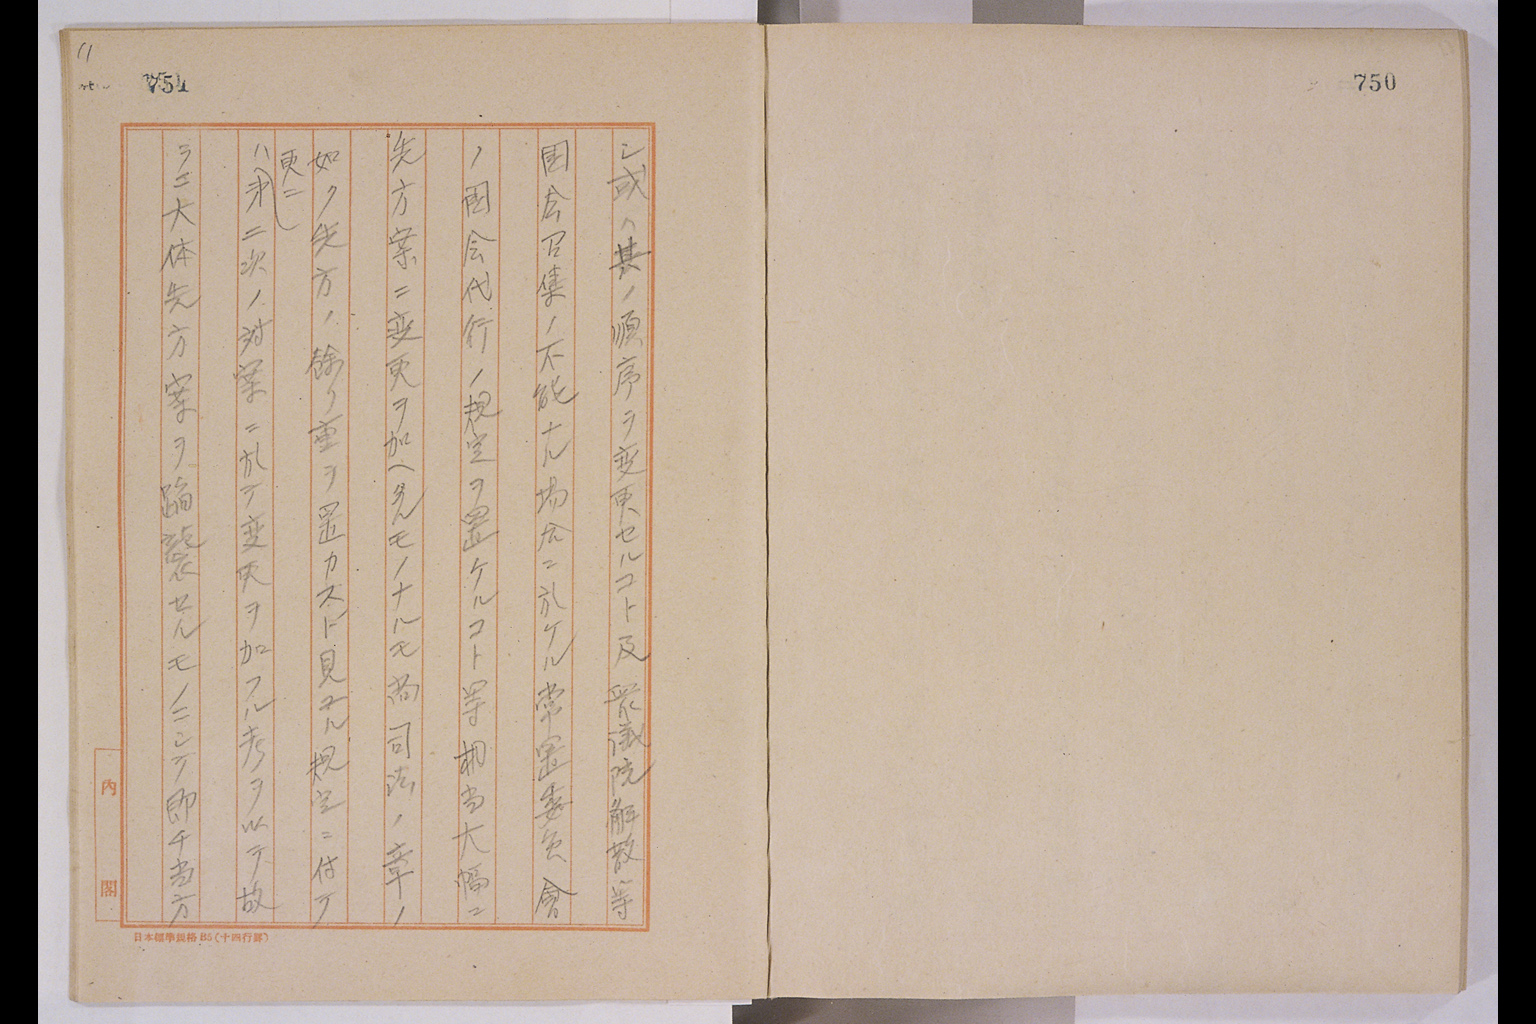 750
751
シ或ハ其ノ順序ヲ変更セルコト及衆議院解散等
国会召集ノ不能ナル場合ニ於ケル常置委員會
ノ國会代行ノ規定ヲ置ケルコト等相当大幅ニ
先方案ニ変更ヲ加ヘタルモノナルモ尚司法ノ章ノ
如ク先方ノ餘リ重ヲ置カスト見ユル規定ニ付テ
ハ更ニ第二次ノ対案ニ於テ変更ヲ加フル考ヲ以テ故
ラニ大体先方案ヲ踏襲セルモノニシテ即チ当方
内閣
日本標準規格B5(十四行罫)